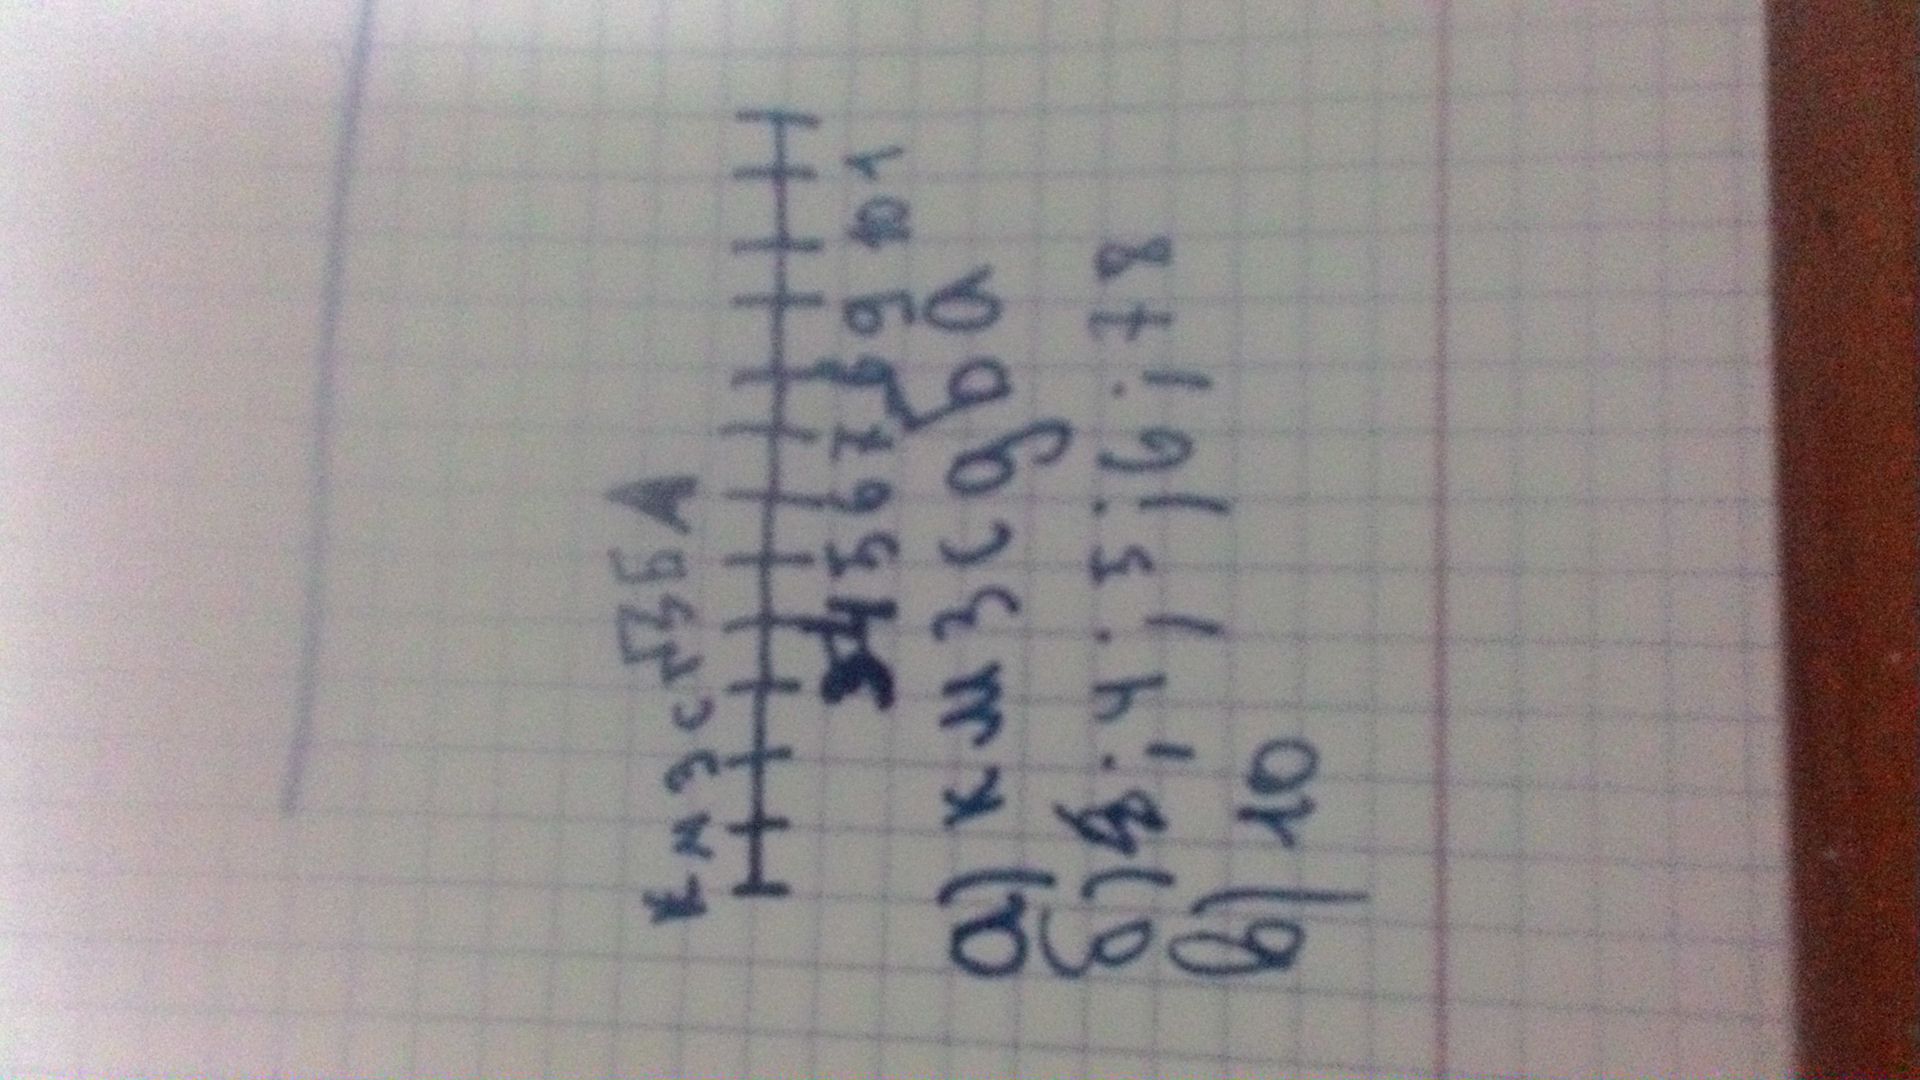 К М З С Д Б А
3 4 5 6 7 8 9 10 1
а) К М З С Д б а
б) 3. 4. 5. 6. 7 8
в) 10